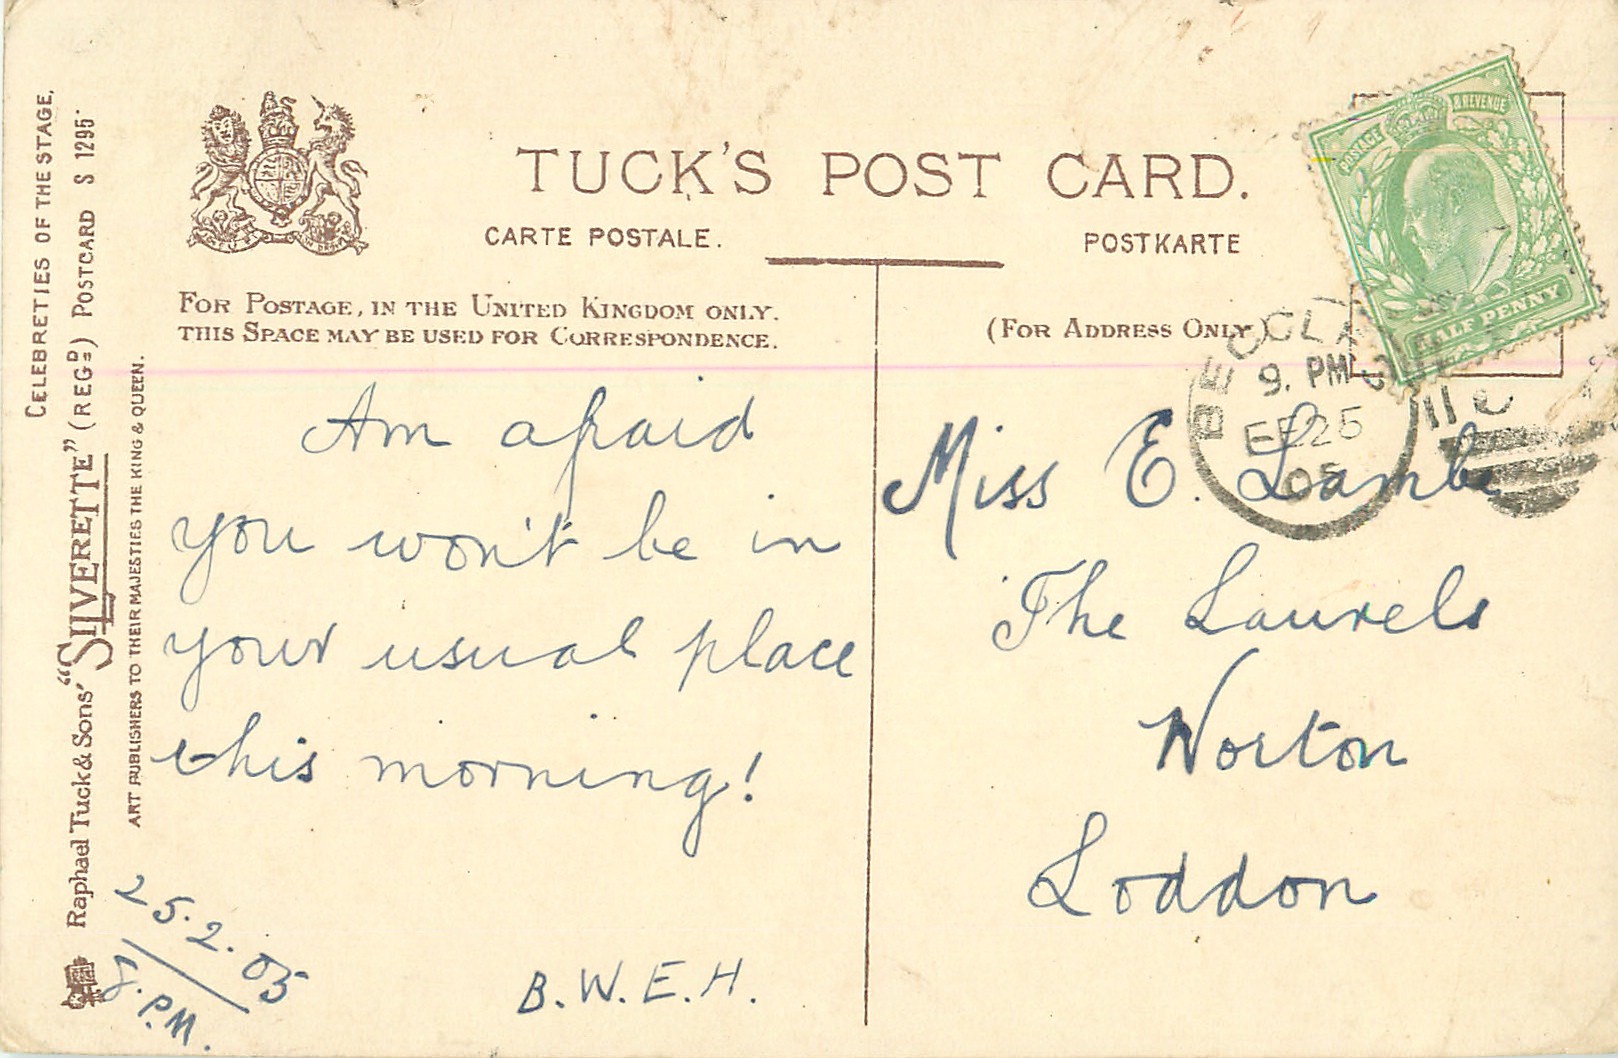 CELEBRETIES OF THE STAGE.
Raphael Tuck & Sons' "SILVERETTE" (REGD) POSTCARD S 1295
ART PUBLISHERS TO THEIR MAJESTIES THE KING & QUEEN.
TUCK'S POST CARD.
CARTE POSTALE.
POSTKARTE
FOR POSTAGE, IN THE UNITED KINGDOM ONLY.
THIS SPACE MAY BE USED FOR CORRESPONDENCE.
(FOR ADDRESS ONLY)
POSTAGE & REVENUE
HALF PENNY
BECCLES
9. PM
FE 25
05
Am afraid
you won't be in
your usual place
this morning!
25.2.05
8.P.M.
B.W.E.H.
Miss E. Lambe
The Laurels
Norton
Loddon